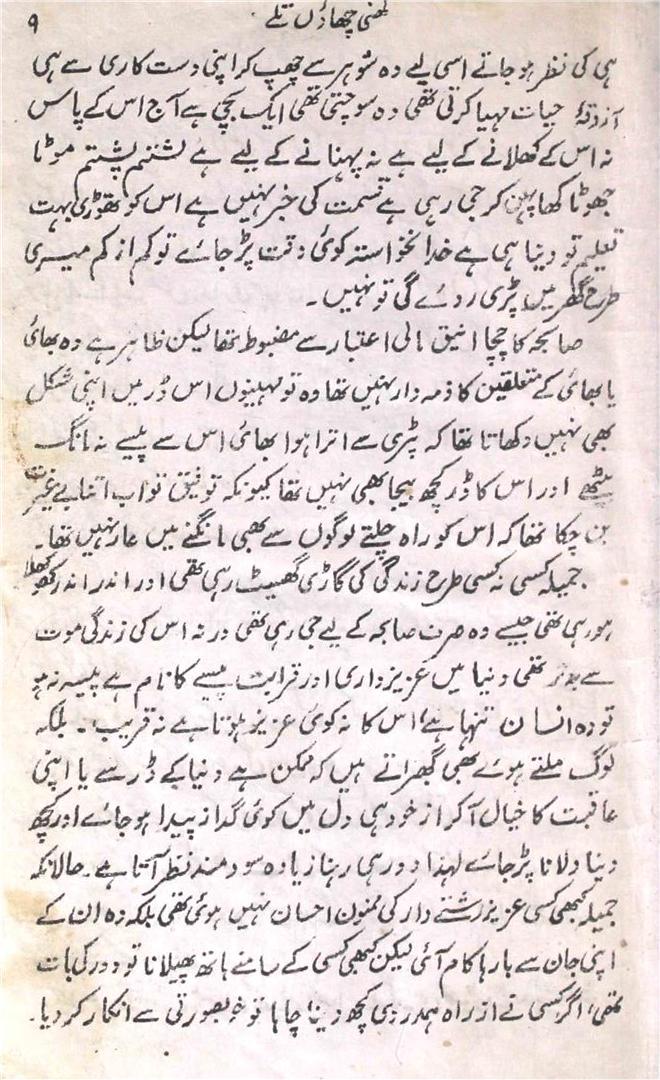 گھنی چھاؤں تلے ۹
ہی کی نظر ہو جاتے اسی لیے وہ شوہر سے چھپ کر اپنی دست کاری سے ہی
آذوقۂ حیات مہیا کرتی تھی وہ سوچتی تھی ایک بچی ہے آج اس کے پاس
نہ اس کے کھلانے کے لیے ہے نہ پہنانے کے لیے ہے لشتم پشتم موٹا
جھوٹا کھا پہن کر جی رہی ہے قسمت کی خبر نہیں ہے اس کو تھوڑی بہت
تعلیم تو دینا ہی ہے خدانخواستہ کوئی وقت پڑ جائے تو کم از کم میری
طرح گھر میں پڑی روئے گی تو نہیں ۔
صابحہ کا چچا انیق مالی اعتبار سے مضبوط تھا لیکن ظاہر ہے وہ بھائی
یا بھائی کے متعلقین کا ذمہ دار نہیں تھا وہ تو مہینوں اس ڈر میں اپنی شکل
بھی نہیں دکھاتا تھا کہ پٹری سے اترا ہوا بھائی اس سے پیسے نہ مانگ
بیٹھے اور اس کا ڈر کچھ بیجا بھی نہیں تھا کیونکہ توفیق تو اب اتنا بے غیرت
بن چکا تھا کہ اس کو راہ چلتے لوگوں سے بھی مانگنے میں عار نہیں تھا۔
جمیلہ کسی نہ کسی طرح زندگی کی گاڑی گھسیٹ رہی تھی اور اندر اندر کھوکھلا
ہو رہی تھی جیسے وہ صرف صابحہ کے لیے جی رہی تھی ورنہ اس کی زندگی موت
سے بدتر تھی دنیا میں عزیزداری اور قرابت پیسے کا نام ہے پیسہ نہ ہو
تو وہ انسان تنہا ہے، اس کا نہ کوئی عزیز ہوتا ہے نہ قریب ۔ بلکہ
لوگ ملتے ہوئے بھی گھبراتے ہیں کہ ممکن ہے دنیا کے ڈر سے یا اپنی
عاقبت کا خیال آ کر از خود ہی دل میں کوئی گداز پیدا ہو جائے اور کچھ
دینا دلانا پڑ جائے لہٰذا دور ہی رہنا زیادہ سودمند نظر آتا ہے۔ حالانکہ
جمیلہ کبھی کسی عزیز رشتے دار کی ممنون احسان نہیں ہوئی تھی بلکہ وہ ان کے
اپنی جان سے بارہا کام آئی لیکن کبھی کسی کے سامنے ہاتھ پھیلانا تو دور کی بات
تھی، اگر کسی نے از راہ ہمدردی کچھ دینا چاہا تو خوبصورتی سے انکار کر دیا۔